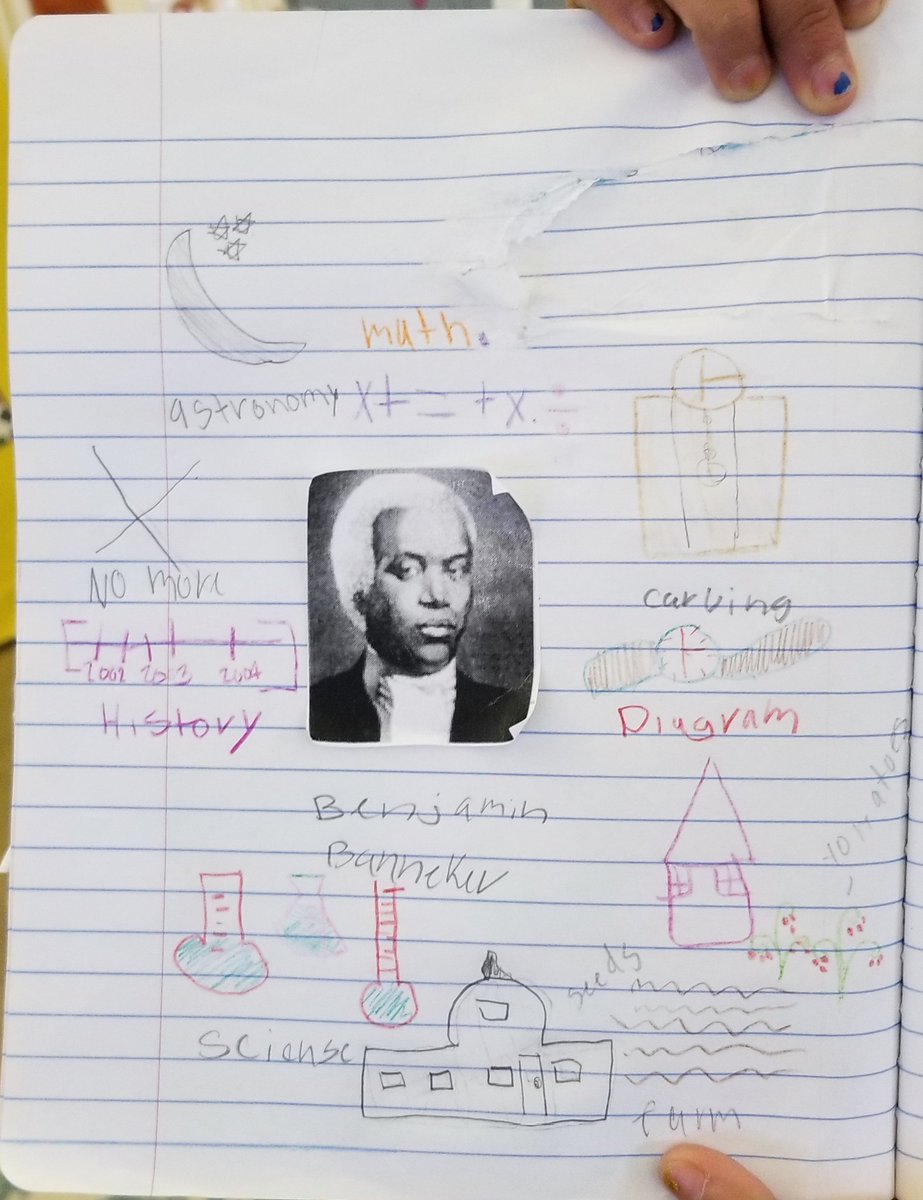 math.
astronomy X + = + X . ÷
No more
carving
2002 2013 2004
History
Diagram
Benjamin
Banneker
tomatoes
seeds
Sciense
farm